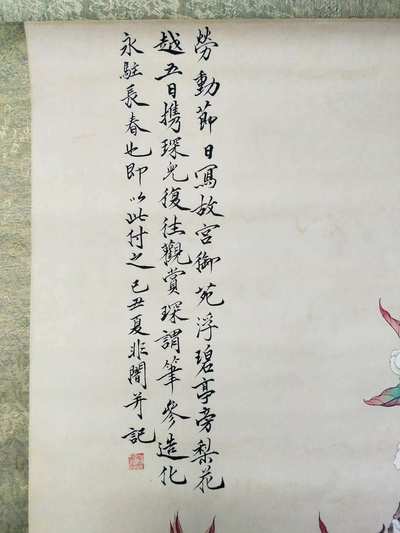 勞動節日寫故宮御苑浮碧亭旁梨花
越五日携琛兒復往觀賞琛謂筆參造化
永駐長春也即以此付之己丑夏非闇并記